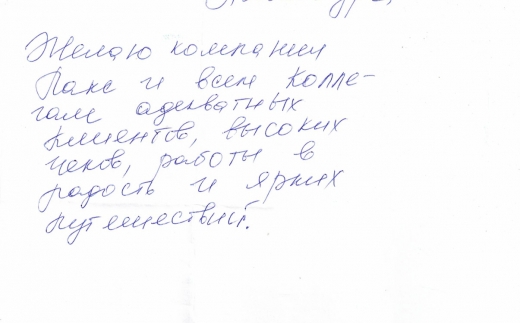 Желаю компании
Пакс и всем колле-
гам адекватных
клиентов, высоких
чеков, работы в
радость и ярких
путешествий.